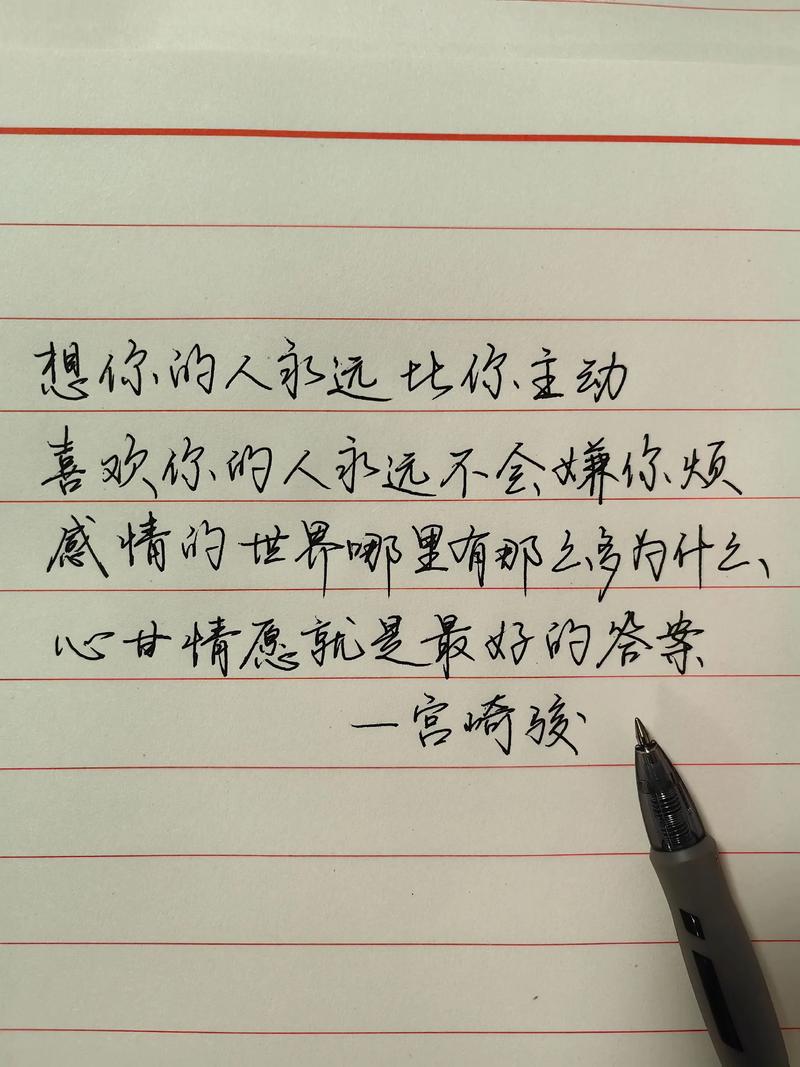 想你的人永远比你主动
喜欢你的人永远不会嫌你烦
感情的世界哪里有那么多为什么、
心甘情愿就是最好的答案
一宫崎骏